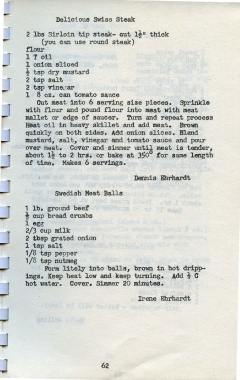 Delicious Swiss Steak
2 lbs Sirloin tip steak- cut 1½" thick
(you can use round steak)
flour
1 T oil
1 onion sliced
½ tsp dry mustard
2 tsp salt
2 tsp vinegar
1 8 oz. can tomato sauce
Cut meat into 6 serving size pieces. Sprinkle
with flour and pound flour into meat with meat
mallet or edge of saucer. Turn and repeat process
Heat oil in heavy skillet and add meat. Brown
quickly on both sides. Add onion slices. Blend
mustard, salt, vinegar and tomato sauce and pour
over meat. Cover and simmer until meat is tender,
about 1½ to 2 hrs. or bake at 350° for same length
of time. Makes 6 servings.
Dennis Ehrhardt
Swedish Meat Balls
1 lb. ground beef
cup bread crumbs
1 egg
2/3 cup milk
2 tbsp grated onion
1 tsp salt
1/8 tsp pepper
1/8 tsp nutmeg
Form litely into balls, brown in hot dripp-
ings. Keep heat low and keep turning. Add ½ C
hot water. Cover. Simmer 20 minutes.
Irene Ehrhardt
62